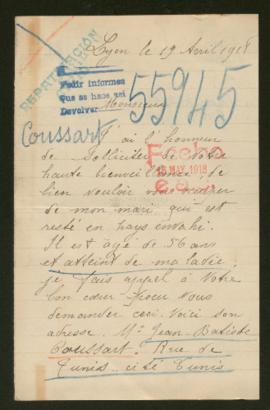 Lyon le 19 Avril 1918
REPATRIACION
Pedir informes
Que se haga asi
Devolver
55945
Monsieur
Coussart
J'ai l'honneur
de solliciter de votre
Fecha
13 MAY. 1918
haute bienveillance, de
bien vouloir vous
de mon mari, qui est
resté en pays envahi.
Il est agé de 56 ans
et atteint de maladie
je fais appel à Votre
bon cœur pour vous
demander ceci. Voici son
adresse. Mr Jean-Batiste
Coussart. Rue de
Tunis cité Tunis